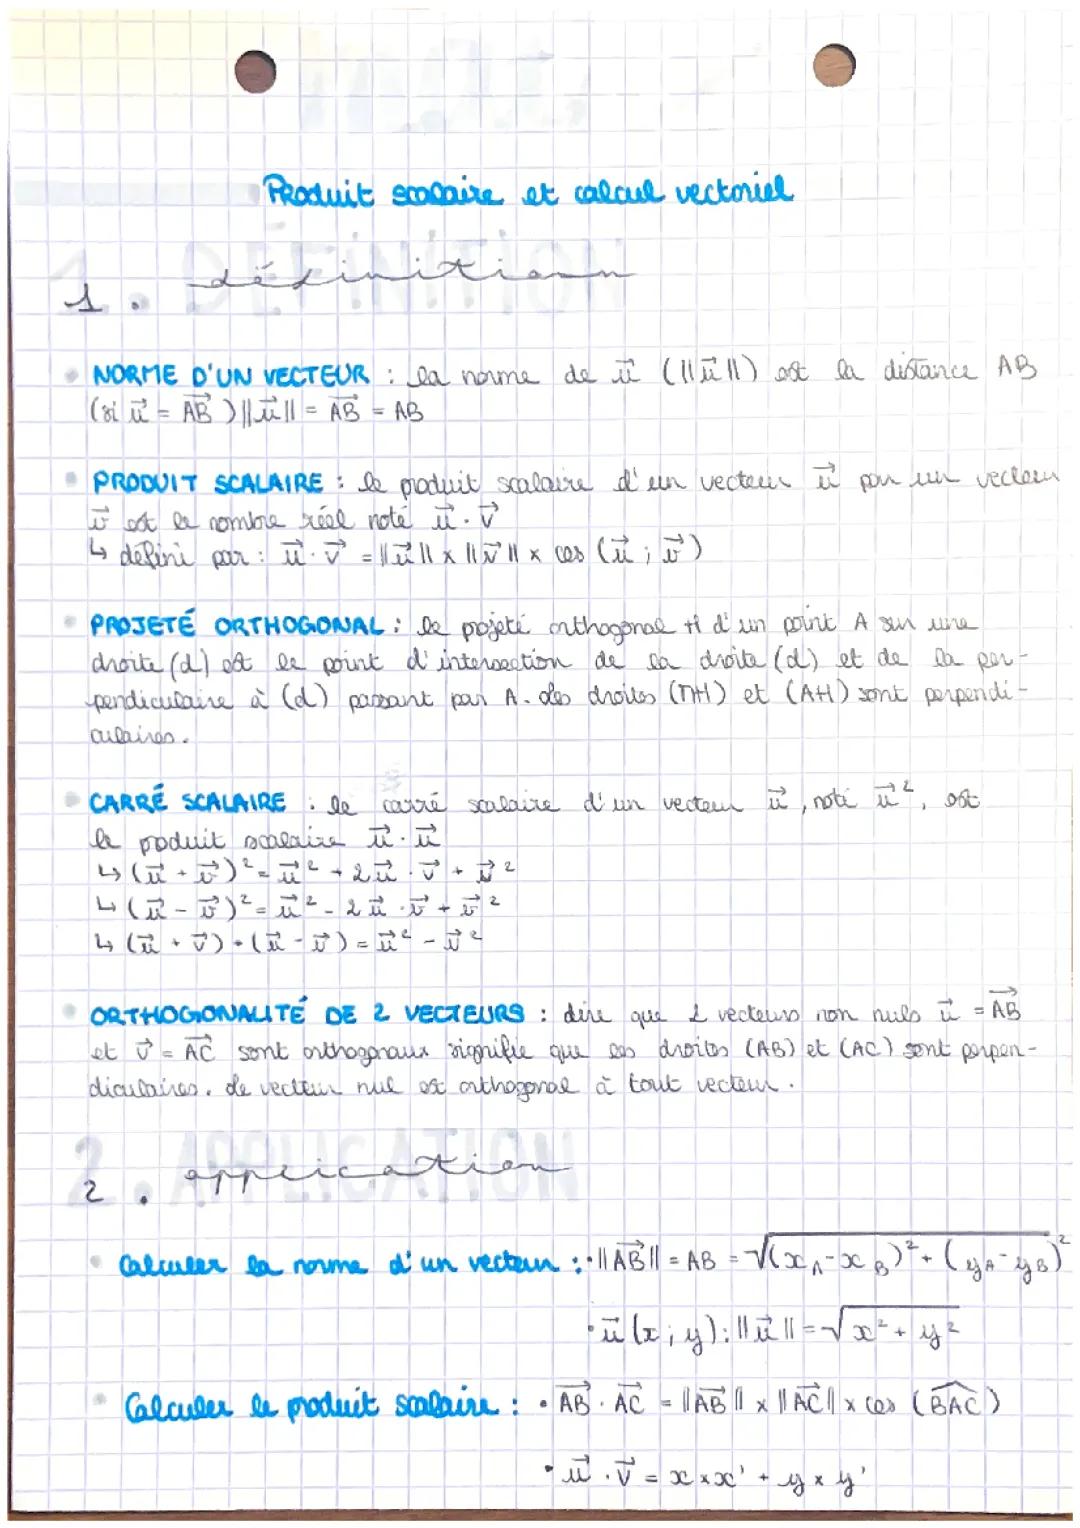 Produit scalaire et calcul vectoriel
1. définition
1. DÉFINITION
• NORME D'UN VECTEUR : la norme de u⃗ (||u⃗||) est la distance AB
(si u⃗ = AB⃗ ) ||u⃗|| = AB⃗ = AB
• PRODUIT SCALAIRE : le produit scalaire d'un vecteur u⃗ par un vecteur
v⃗ est le nombre réel noté u⃗ . v⃗
↳ défini par : u⃗ . v⃗ = ||u⃗|| x ||v⃗|| x cos (u⃗ ; v⃗)
• PROJETÉ ORTHOGONAL : le projeté orthogonal H d'un point A sur une
droite (d) est le point d'intersection de la droite (d) et de la per-
pendiculaire à (d) passant par A. Les droites (MH) et (AH) sont perpendi-
culaires.
• CARRÉ SCALAIRE : le carré scalaire d'un vecteur u⃗, noté u⃗², est
le produit scalaire u⃗ . u⃗
↳ (u⃗ + v⃗)² = u⃗² + 2u⃗ . v⃗ + v⃗²
↳ (u⃗ - v⃗)² = u⃗² - 2u⃗ . v⃗ + v⃗²
↳ (u⃗ + v⃗) • (u⃗ - v⃗) = u⃗² - v⃗²
• ORTHOGONALITÉ DE 2 VECTEURS : dire que 2 vecteurs non nuls u⃗ = AB⃗
et v⃗ = AC⃗ sont orthogonaux signifie que les droites (AB) et (AC) sont perpen-
diculaires. Le vecteur nul est orthogonal à tout vecteur.
2. application
2. APPLICATION
• Calculer la norme d'un vecteur : • ||AB⃗|| = AB = √(x_A - x_B)² + (y_A - y_B)²
• u⃗ (x ; y) : ||u⃗|| = √x² + y²
• Calculer le produit scalaire : • AB⃗ . AC⃗ = ||AB⃗|| x ||AC⃗|| x cos (B̂AC)
• u⃗ . v⃗ = x × x' + y × y'